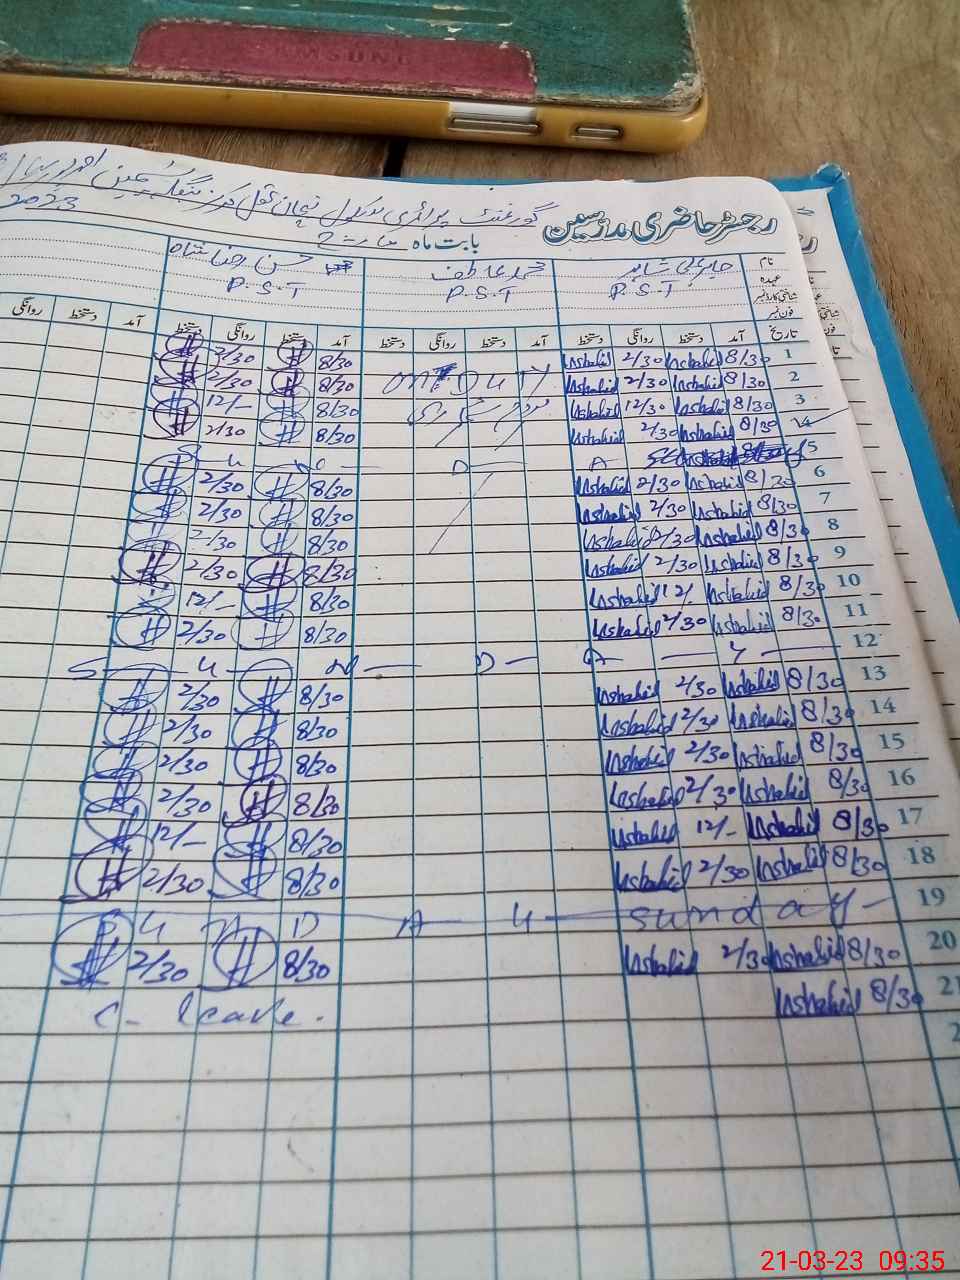 SAMSUNG
رجسٹر حاضری مدرسین گورنمنٹ پرائمری سکول
بابت ماہ مارچ 2023
نام حسن رضا شاہ محمد عاطف
عہدہ P.S.T P.S.T P.S.T
شناختی کارڈ نمبر
فون نمبر
تاریخ آمد دستخط روانگی دستخط آمد دستخط روانگی دستخط آمد دستخط روانگی دستخط آمد دستخط روانگی
1 8/30 Ushahid 2/30 Ushahid 8/30 2/30
2 8/30 Ushahid 2/30 Ushahid 8/30 2/30
3 8/30 Ushahid 12/30 Ushahid 8/30 12/-
4 8/30 Ushahid 2/30 Ushahid 8/30 2/30
5 S U N D A
6 8/30 Ushahid 2/30 Ushahid 8/30 2/30
7 8/30 Ushahid 2/30 Ushahid 8/30 2/30
8 8/30 Ushahid 2/30 Ushahid 8/30 2/30
9 8/30 Ushahid 2/30 Ushahid 8/30 2/30
10 8/30 Ushahid 12/- Ushahid 8/30 12/-
11 8/30 Ushahid 2/30 Ushahid 8/30 2/30
12 S U N D A Y
13 8/30 Ushahid 2/30 Ushahid 8/30 2/30
14 8/30 Ushahid 2/30 Ushahid 8/30 2/30
15 8/30 Ushahid 2/30 Ushahid 8/30 2/30
16 8/30 Ushahid 2/30 Ushahid 8/30 2/30
17 8/30 Ushahid 12/- Ushahid 8/30 12/-
18 8/30 Ushahid 2/30 Ushahid 8/30 2/30
19 S U N D A Y Sunday
20 8/30 Ushahid 2/30 Ushahid 8/30 2/30
21 8/30 Ushahid C- leave.
2
21-03-23 09:35